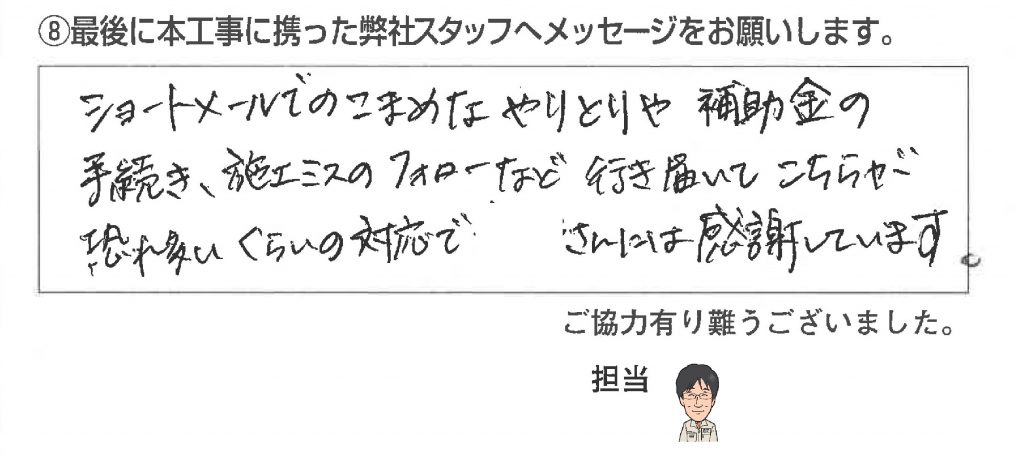 ⑧最後に本工事に携った弊社スタッフへメッセージをお願いします。
ショートメールでのこまめなやりとりや 補助金の
手続き、施工ミスのフォローなど 行き届いて こちらが
恐れ多いくらいの対応で さんには感謝しています。
ご協力有り難うございました。
担当